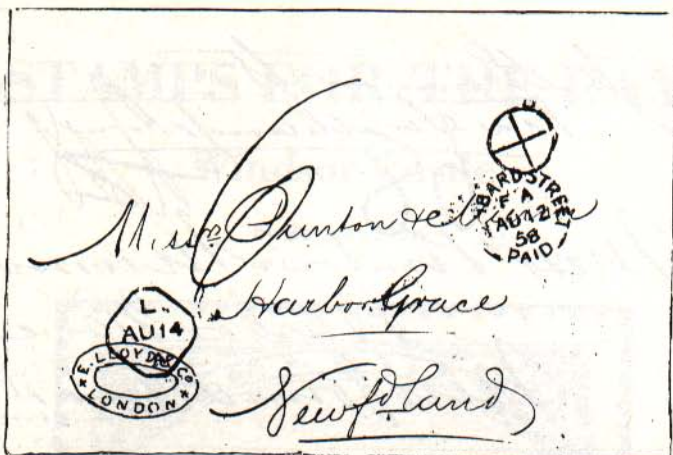 6
LOMBARD STREET
F A
AU 12
58
PAID
Messrs Punton &
Harbor Grace
Newfdland
L.
AU 14
E. LLOYD & Co
LONDON